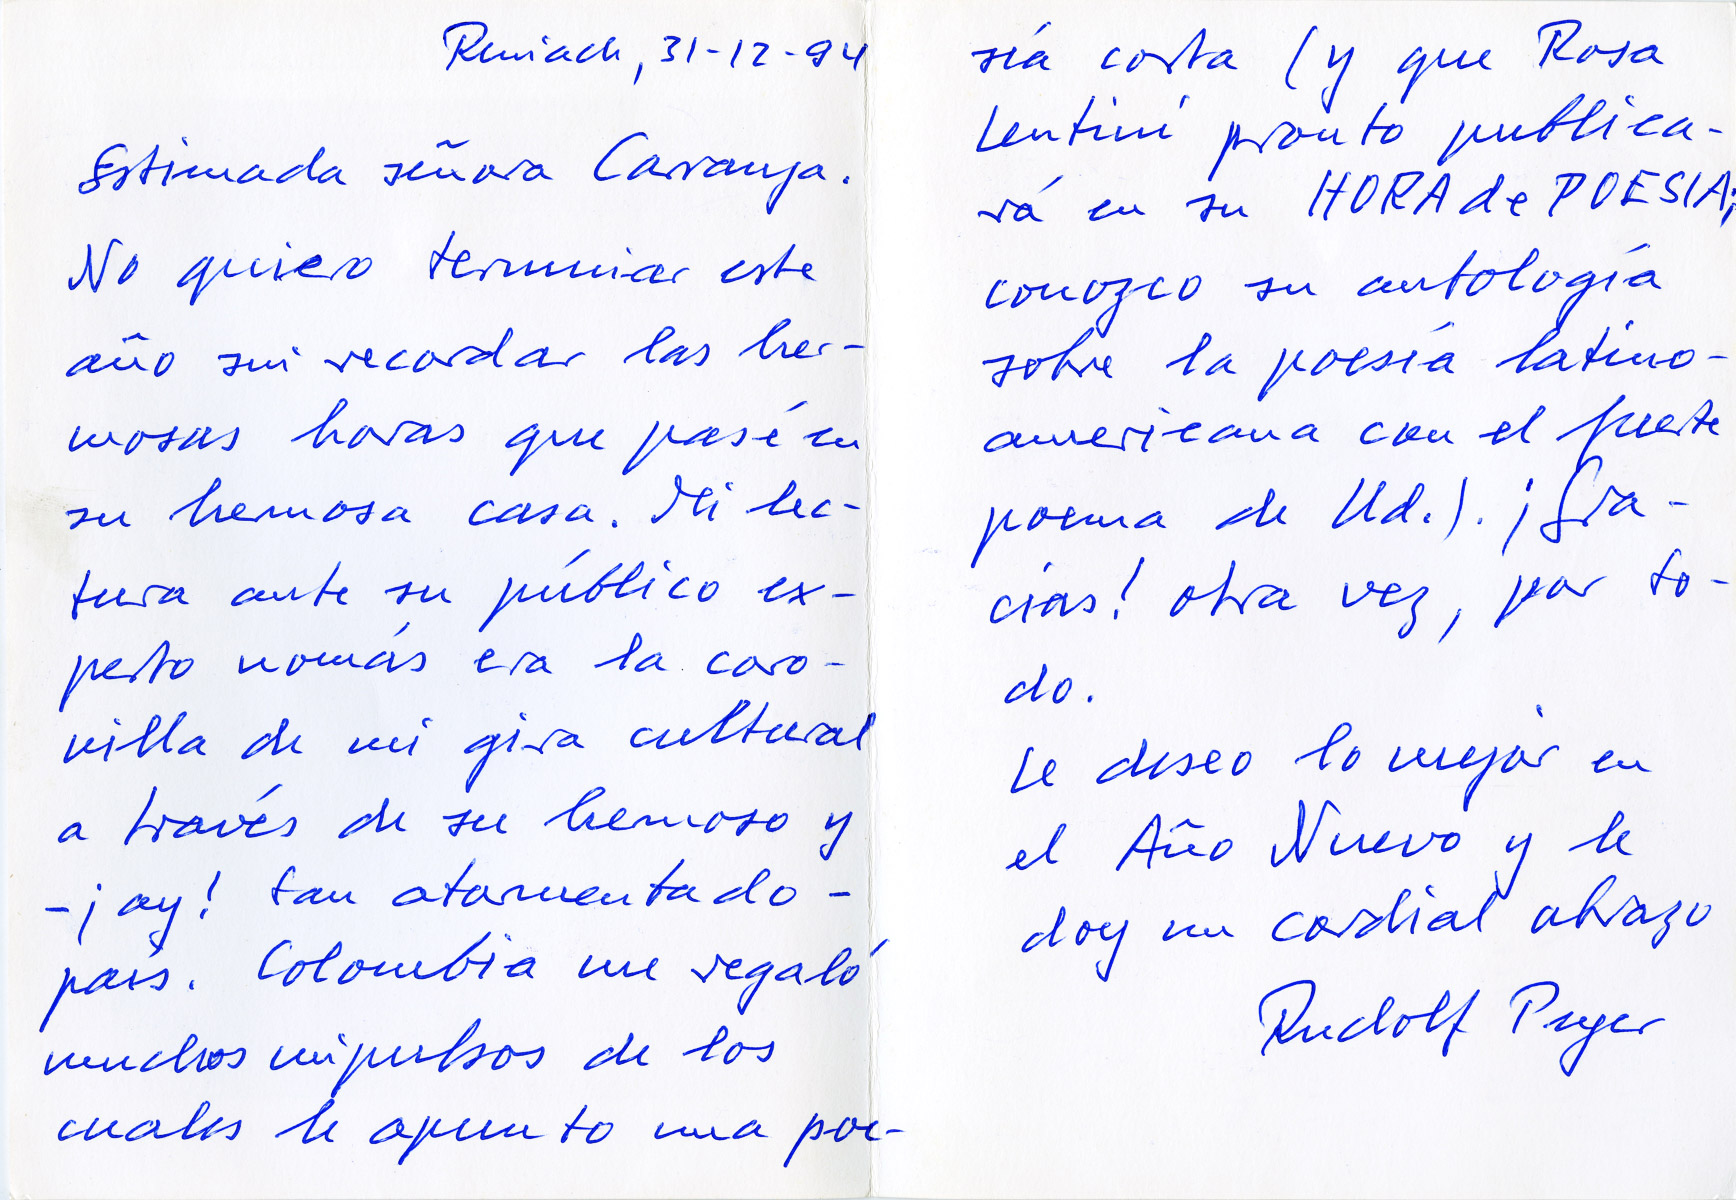 Reinach, 31-12-94
Estimada señora Carranza.
No quiero terminar este
año sin recordar las her-
mosas horas que pasé en
su hermosa casa. Mi lec-
tura ante su público ex-
perto nomás era la coro-
nilla de mi gira cultural
a través de su hermoso y
-¡ay! tan atormentado-
país. Colombia me regaló
muchos impulsos de los
cuales le apunto una poe-
sía corta (y que Rosa
Lentini pronto publica-
rá en su HORA de POESIA;
conozco su antología
sobre la poesía latino-
americana con el fuerte
poema de Ud.). ¡Gra-
cias! otra vez, por to-
do.
Le deseo lo mejor en
el Año Nuevo y le
doy un cordial abrazo
Rudolf Peyer